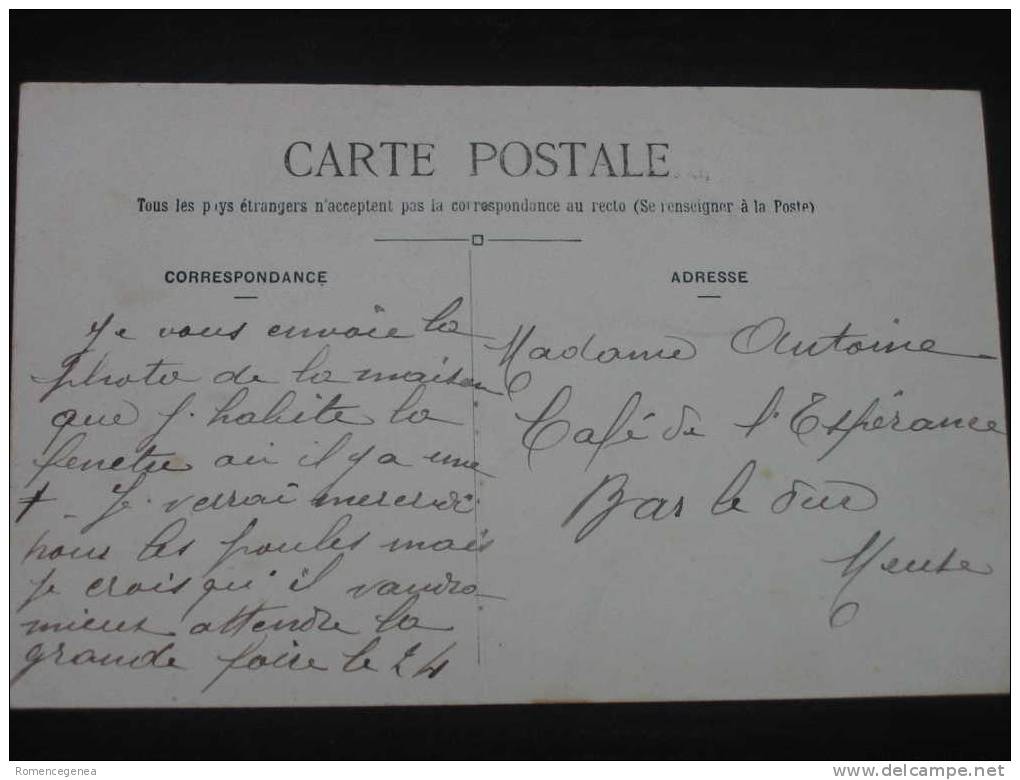 CARTE POSTALE
Tous les pays étrangers n'acceptent pas la correspondance au recto (Se renseigner à la Poste)
CORRESPONDANCE
Je vous envoie la
photo de la maison
que j. habite la
fenetre ou il y a une
+ Je verrai mercredi
pour les poules mais
je crois qu'il vaudra
mieux attendre la
grande foire le 24
ADRESSE
Madame Antoine
Café de l'Espérance
Bar le duc
Meuse
Romencegenea
delcampe.net